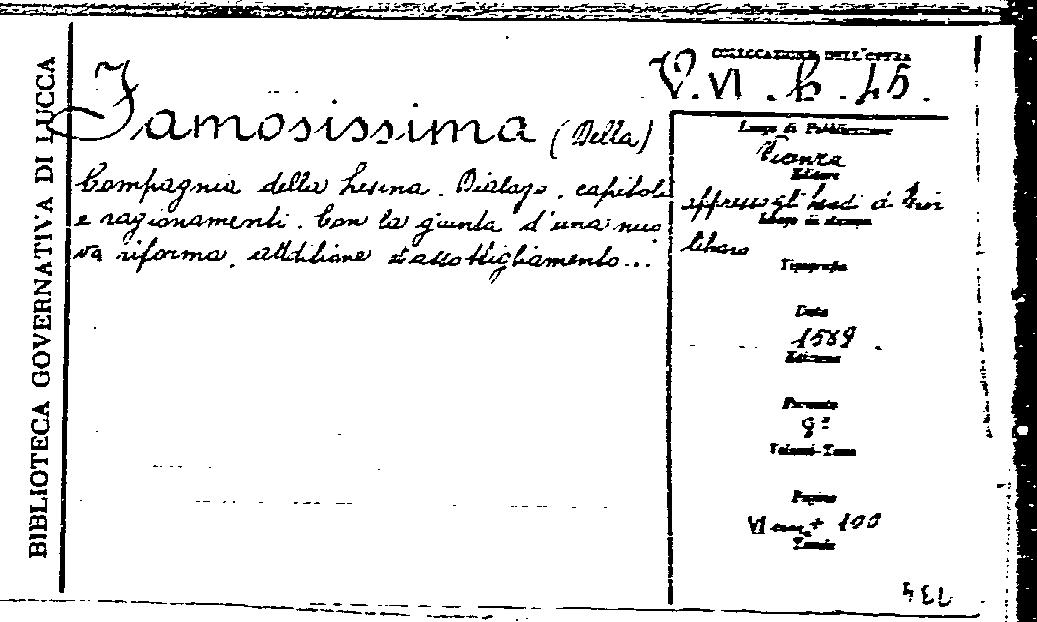 BIBLIOTECA GOVERNATIVA DI LUCCA
COLLOCAZIONE DELL'OPERA
V. VI. b. 45.
Famosissima (Della)
Compagnia della Lesina. Dialogo, capitoli
e ragionamenti. Con la giunta d'una nuo
va riforma, additione d'assottigliamento...
Luogo di Pubblicazione
Vicenza
Editore
appresso gli
Luogo di stampa
Tipografia
Data
1589
Edizione
Formato
8º
Volumi-Tomi
Pagine
VI + 100
Tavole